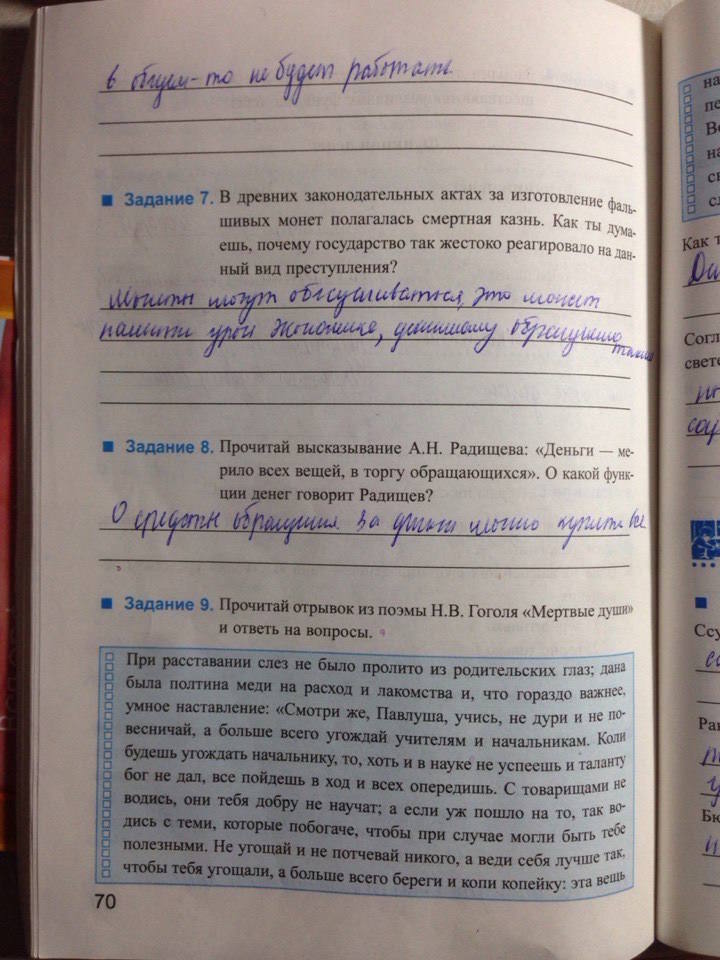 в общем-то не будет работать.
Задание 7. В древних законодательных актах за изготовление фаль-
шивых монет полагалась смертная казнь. Как ты дума-
ешь, почему государство так жестоко реагировало на дан-
ный вид преступления?
Монеты могут обесцениваться, это может
нанести урон экономике, денежному обращению
Задание 8. Прочитай высказывание А.Н. Радищева: «Деньги — ме-
рило всех вещей, в торгу обращающихся». О какой функ-
ции денег говорит Радищев?
О средстве обращения. За деньги можно купить все
Задание 9. Прочитай отрывок из поэмы Н.В. Гоголя «Мертвые души»
и ответь на вопросы.
При расставании слез не было пролито из родительских глаз; дана
была полтина меди на расход и лакомства и, что гораздо важнее,
умное наставление: «Смотри же, Павлуша, учись, не дури и не по-
весничай, а больше всего угождай учителям и начальникам. Коли
будешь угождать начальнику, то, хоть и в науке не успеешь и таланту
бог не дал, все пойдешь в ход и всех опередишь. С товарищами не
водись, они тебя добру не научат; а если уж пошло на то, так во-
дись с теми, которые побогаче, чтобы при случае могли быть тебе
полезными. Не угощай и не потчевай никого, а веди себя лучше так,
чтобы тебя угощали, а больше всего береги и копи копейку: эта вещь
70
на
пе
Во
на
св
сл
Как т
Согл
свете
Ссу
Ран
Бю